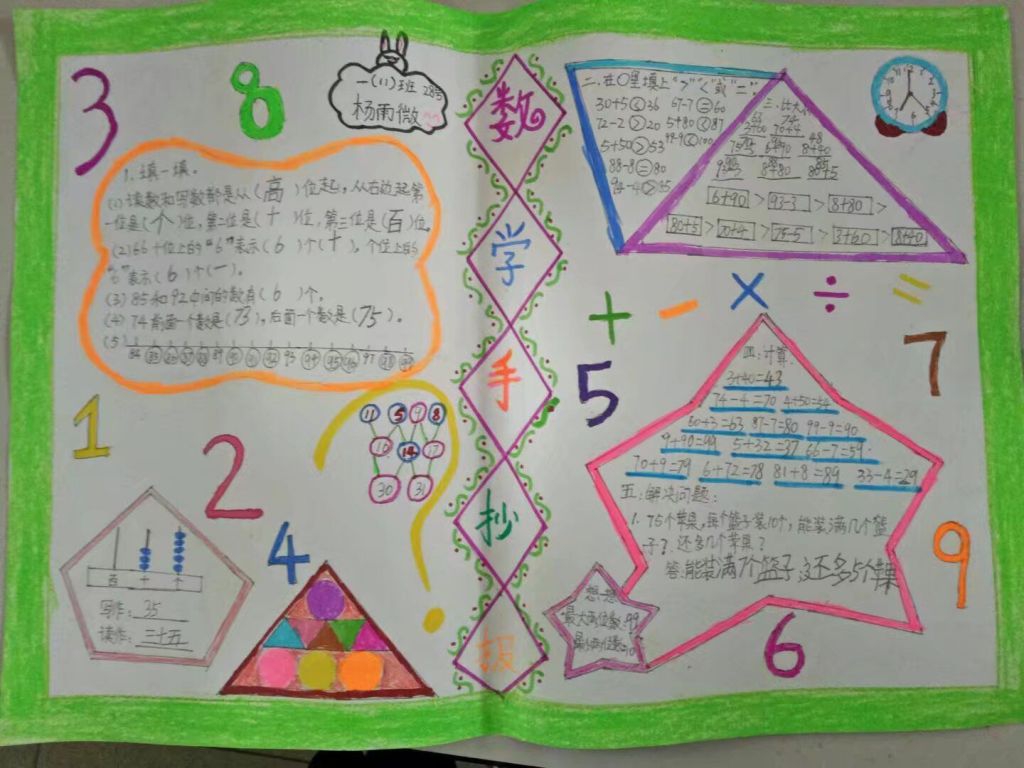 3
8
一(11)班 28号
杨雨微
数
学
手
抄
报
1、填一填。
(1)读数和写数都是从(高)位起，从右边起第
一位是(个)位，第二位是(十)位，第三位是(百)位。
(2)66十位上的"6"表示(6)个(十)，个位上的
"6"表示(6)个(一)。
(3)85和92中间的数有(6)个。
(4)74前面一个数是(73)，后面一个数是(75)。
(5)
84 85 86 87 88 89 90 91 92 93 94 95 96 97 98 99
1
2
11 5 9 8
16 14 17
30 31
4
百 十 个
写作：35
读作：三十五
二、在○里填上">""<"或"="。
30+5<36 67-7=60
72-2>20 5+80<87
5+50>53 99-9<100
88-8=80
94-40>35
三、比大小
6+90 > 93-3 > 8+80 >
80+5 > 70+4 > 75-5 > 3+60 > 8+40
+ - × ÷ =
5
7
四：计算：
3+40=43
74-4=70 4+50=54
60+3=63 87-7=80 99-9=90
9+90=99 5+32=37 66-7=59
70+9=79 6+72=78 81+8=89 33-4=29
五：解决问题：
1、75个苹果，每个篮子装10个，能装满几个篮
子？还多几个苹果？
答：能装满7个篮子，还多5个苹果
想一想
最大两位数:99
最小两位数:10
9
6